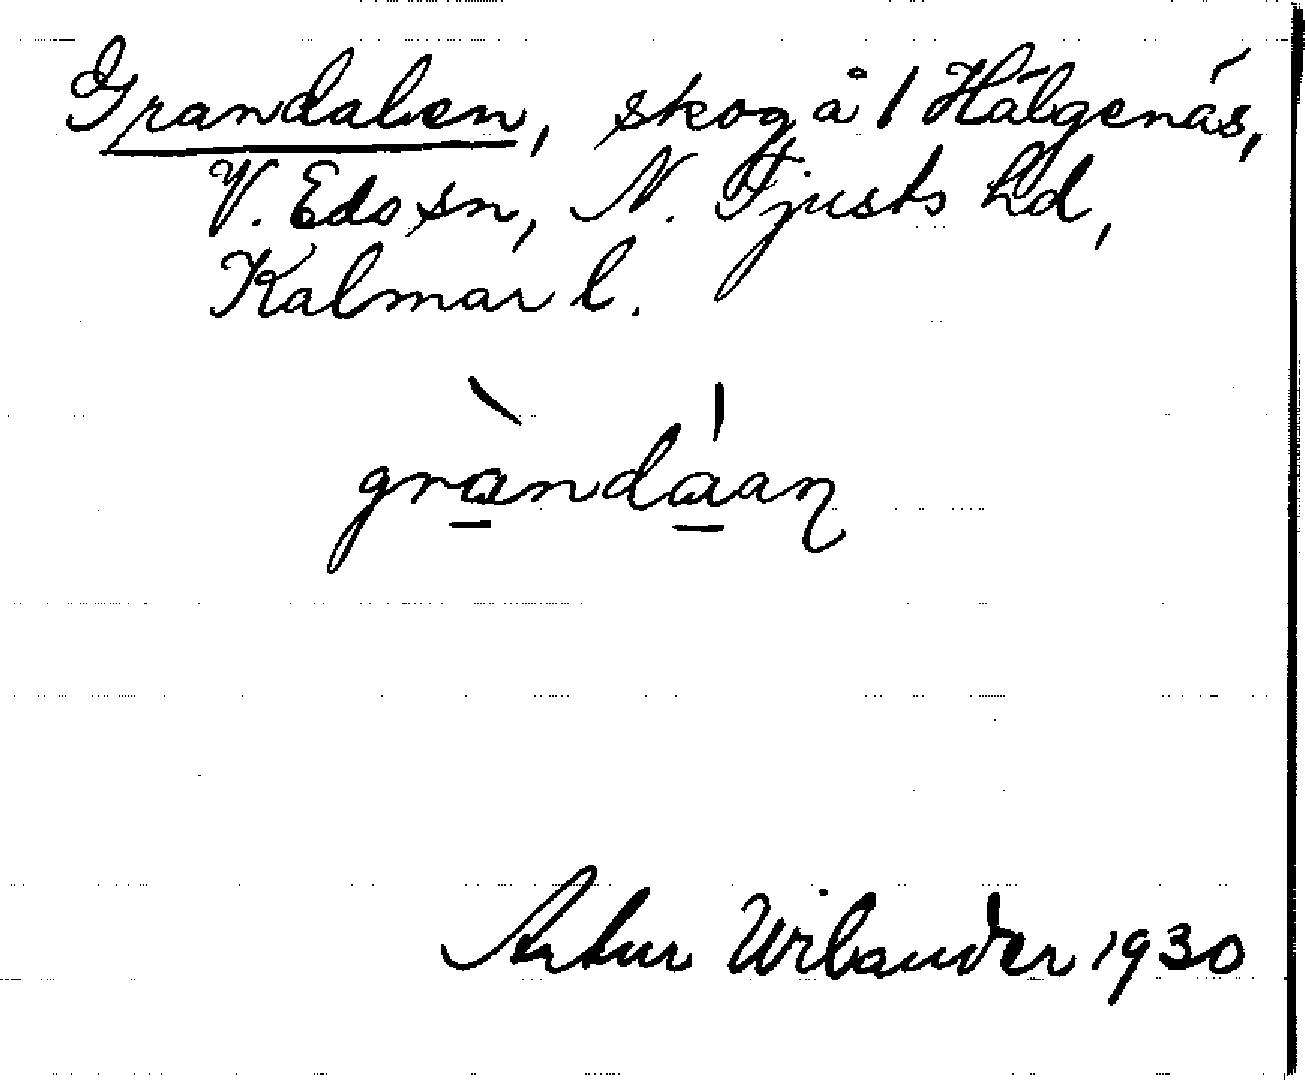 Grandalen, skog å 1 Hälgenäs,
V. Eds sn, N. Tjusts hd,
Kalmar l.
gràndáaɳ
Artur Wilander 1930